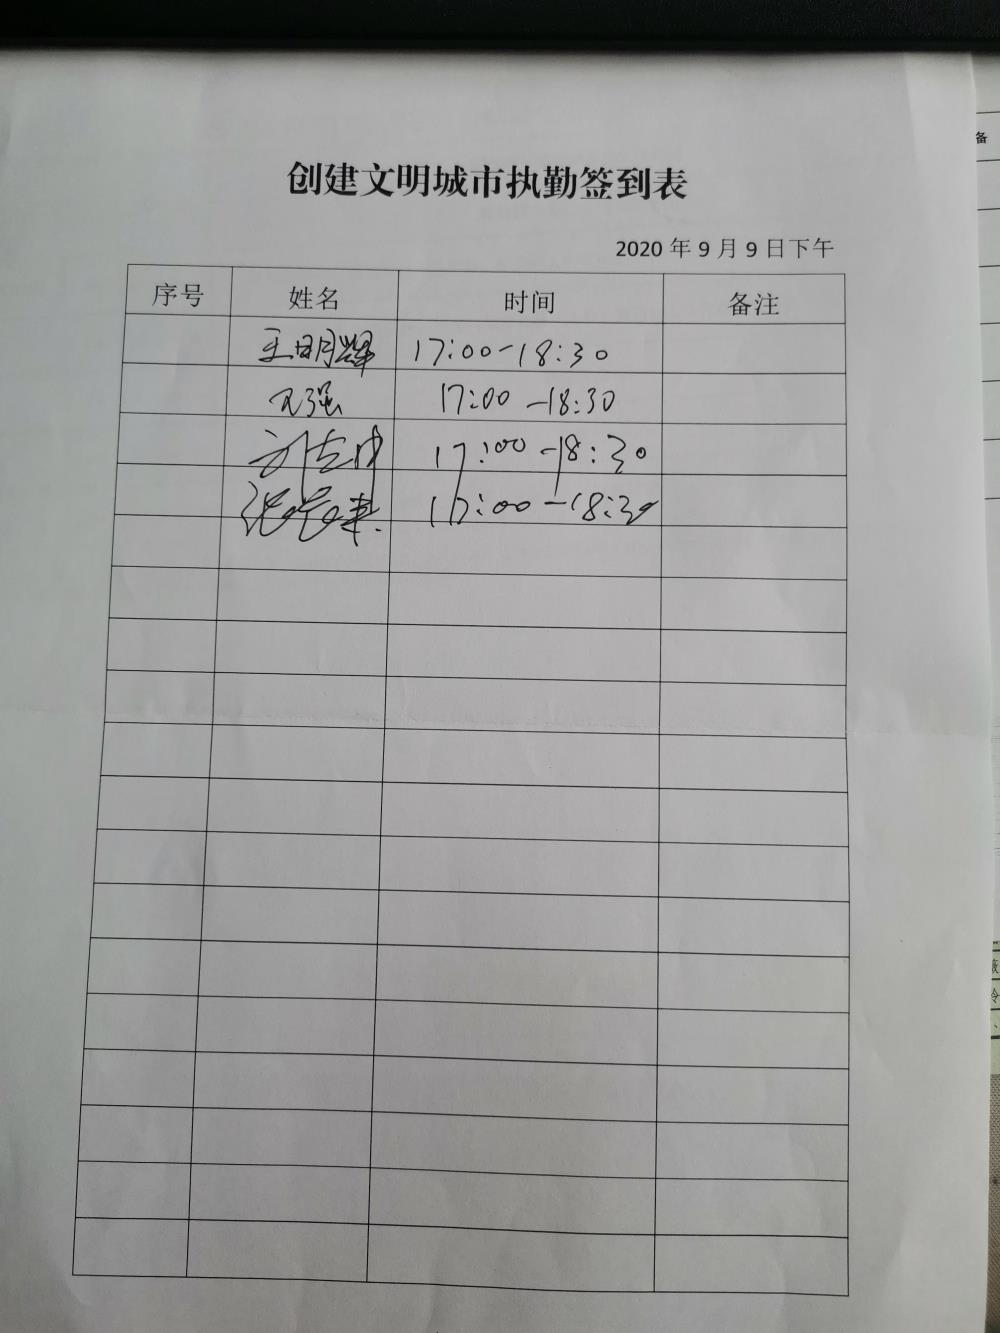 创建文明城市执勤签到表
2020 年 9 月 9 日下午
序号 姓名 时间 备注
王明辉 17:00-18:30
王强 17:00-18:30
17:00-18:30
17:00-18:30
备